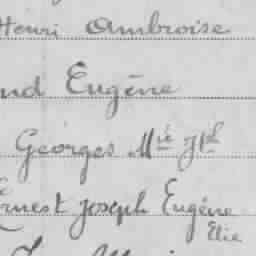 Henri Ambroise
nd Eugène
Georges Mie Jph
Ernest Joseph Eugène
Elie